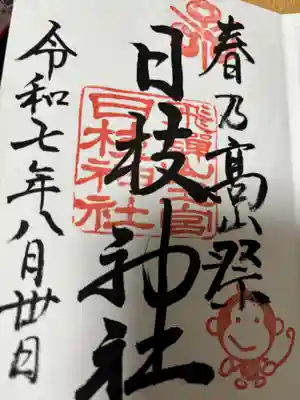 春乃高山祭
飛騨山王宮
日枝神社
日枝神社
令和七年八月卅日